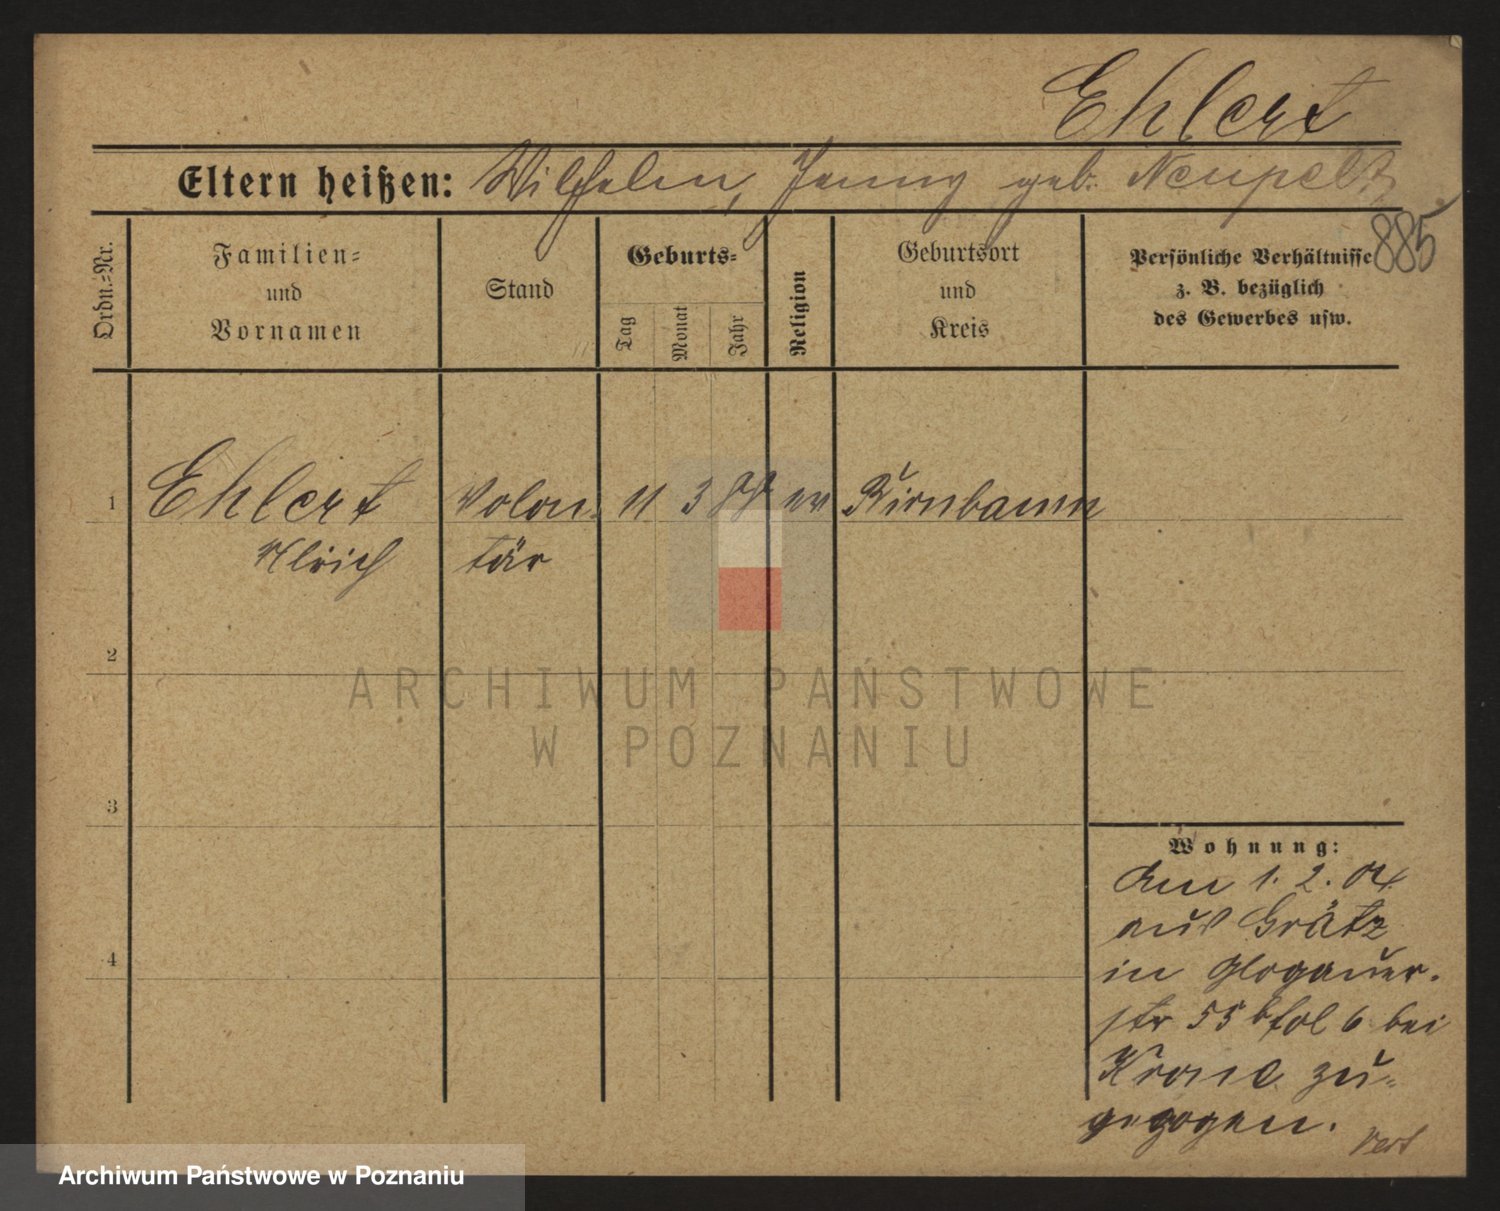 Ehlert
Eltern heißen: Wilhelm, Jenny geb. Neupelt
885
Ordn.=Nr.
Familien=
und
Vornamen
Stand
Geburts=
Tag
Monat
Jahr
Religion
Geburtsort
und
Kreis
Persönliche Verhältnisse
z. B. bezüglich
des Gewerbes usw.
1 Ehlert Volon= 11 3 ev Birnbaum
Ulrich tär
2
ARCHIWUM PAŃSTWOWE
W POZNANIU
3
4
Wohnung:
Am 1. 2. 04
aus Grätz
in Glogauer=
str 55 fol 6 bei
Krone zu=
gezogen.
Archiwum Państwowe w Poznaniu